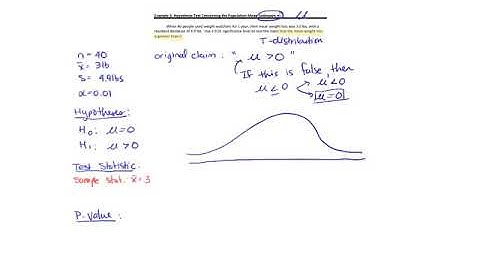 Example 3: Hypothesis Test Concerning the Population Mean (unknown σ)
μ
When 40 people used weight watchers for 1 year, their mean weight loss was 3.0 lbs. with a
standard deviation of 4.9 lbs. Use a 0.01 significance level to test the claim that the mean weight loss
is greater than 0.
T-distribution
n = 40
x̄ = 3lb
s = 4.9lbs
α=0.01
original claim: "μ >0"
If this is false, then
μ ≤ 0
μ<0
μ=0
Hypotheses:
H₀: μ=0
H₁: μ > 0
Test Statistic:
Sample stat. x̄ = 3
P-value: